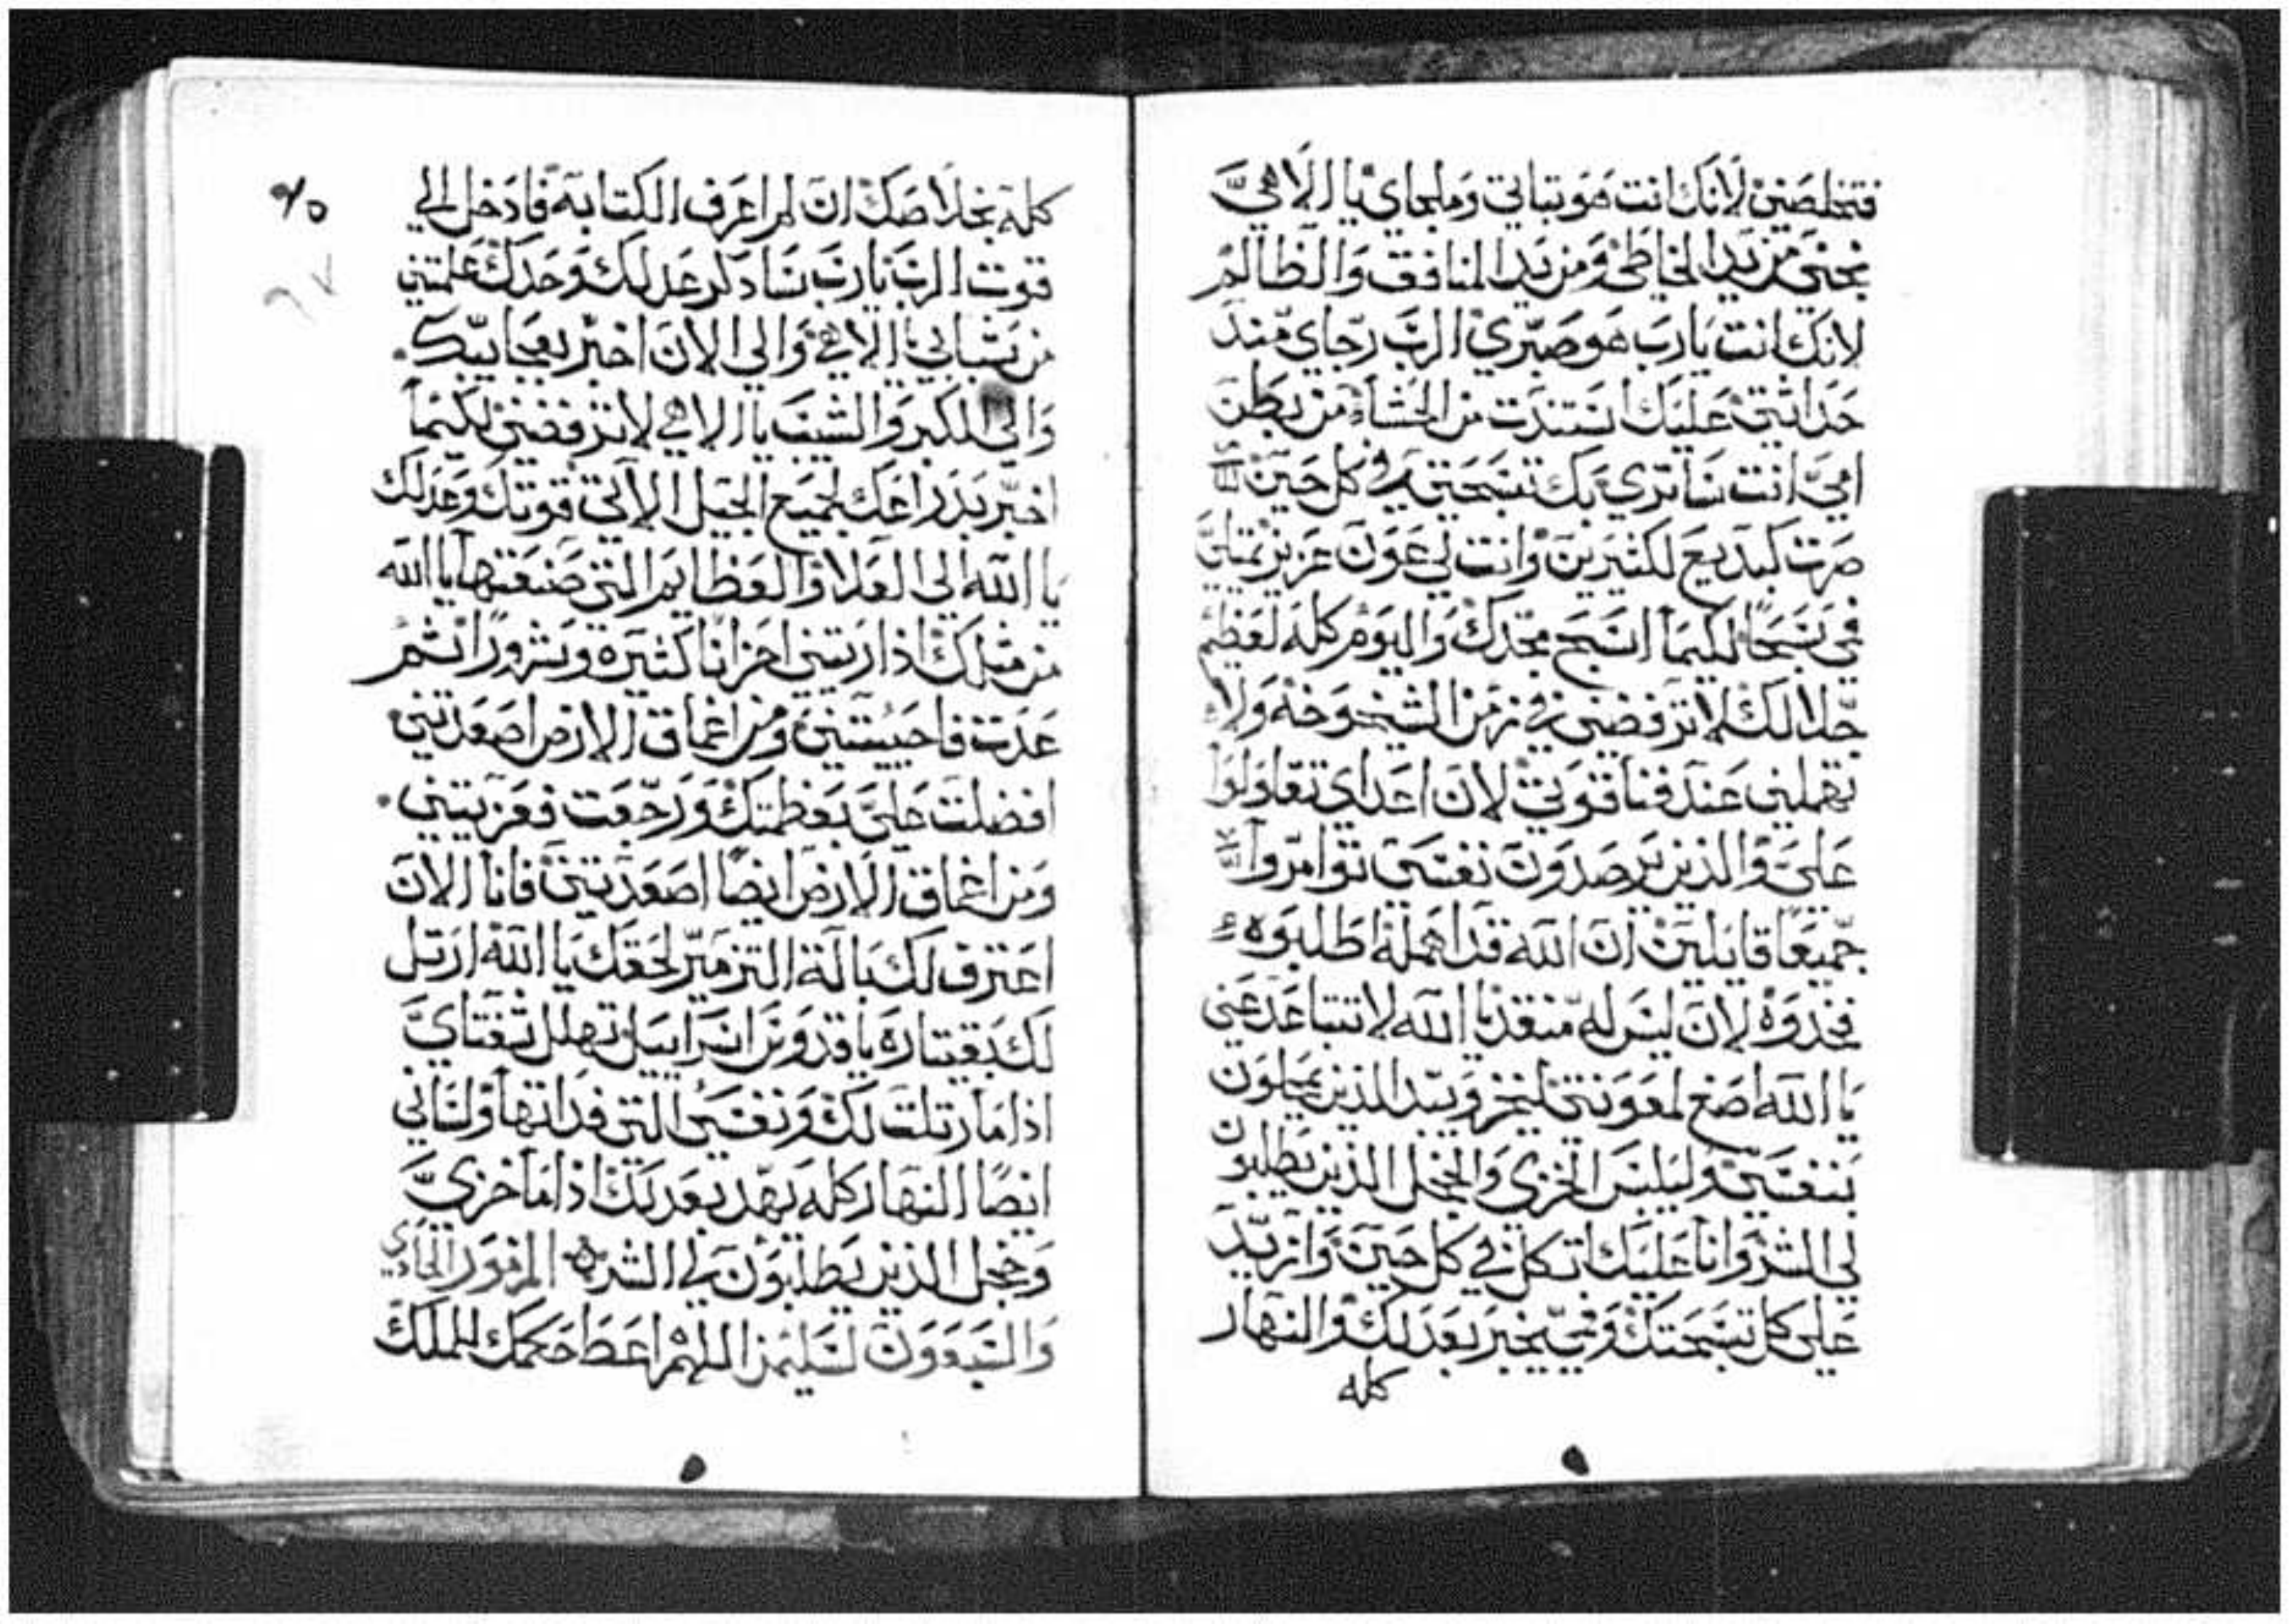 فتخلصني لانك انت هو تباتي وملجاي يا الاهي
نجني من يد الخاطي ومن يد المنافق والظالم
لانك انت يارب هو صبري الرب رجاي منذ
حداثتي عليك استندت من الحشاء من بطن
امي انت ساتري بك تسبحتي في كل حين
صرت كبديع لكثيرين وانت لي عون عزيز يمتلي
في تسبحاً لكيما اسبح مجدك واليوم كله لعظم
جلالك لا ترفضني في زمن الشيخوخه ولا
تهملني عند فنا قوتي لان اعداي تقاولوا
علي والذين يرصدون نفسي توامروا
جميعاً قايلين ان الله قد اهمله اطلبوه
فخدوه لان ليس له منقد يا الله لا تتباعد عني
يا الله اصغ لمعونتي ليخز ويبد الذين يمحلون
بنفسي وليلبس الخزي والخجل الذين يطلبون
لي الشر وانا عليك اتكل في كل حين وازيد
على كل تسبحتك وفمي يخبر بعدلك والنهار
كله
٩٥
٩٧
كله بخلاصك ان لم اعرف الكتابة فادخل الي
قوت الرب يارب سادكر عدلك وحدك علمتني
من شبابي يا الاهي والى الان اخبر بعجايبك.
والى الكبر والشيب يا الاهي لا ترفضني لكيما
اخبر بدراعك لجميع الجيل الآتي قوتك وعدلك
يا الله الى العلا والعظايم التي صنعتها يا الله
من مثلك اذ اريتني احزانا كثيرة وشرورا ثم
عدت فاحييتني ومن اعماق الارض اصعدتني
افضلت علي بعظمتك ورجعت فعزيتني.
ومن اعماق الارض ايضا اصعدتني فانا الان
اعترف لك بالة التزمير لحقك يا الله ارتل
لك بقيتاره يا قدوس اسراييل تهلل شفتاي
اذا ما رتلت لك ونفسي التي فداتها ولساني
ايضا النهار كله يهد بعدلك اذا ما خزي
وخجل الذين يطلبون لي الشر المزمور الحادي
والسبعون لسليمن اللهم اعط حكمك للملك